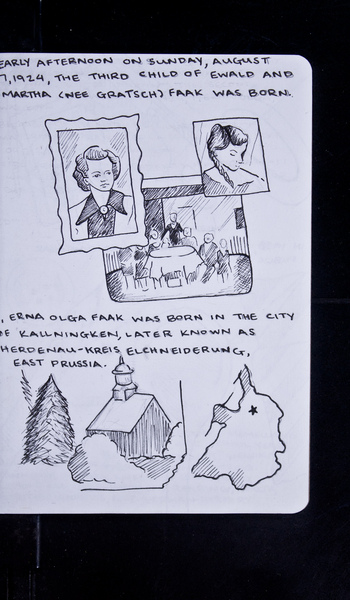 EARLY AFTERNOON ON SUNDAY, AUGUST
7, 1924, THE THIRD CHILD OF EWALD AND
MARTHA (NEE GRATSCH) FAAK WAS BORN.
, ERNA OLGA FAAK WAS BORN IN THE CITY
OF KALLNINGKEN, LATER KNOWN AS
HERDENAU-KREIS ELCHNEIDERUNG,
EAST PRUSSIA.